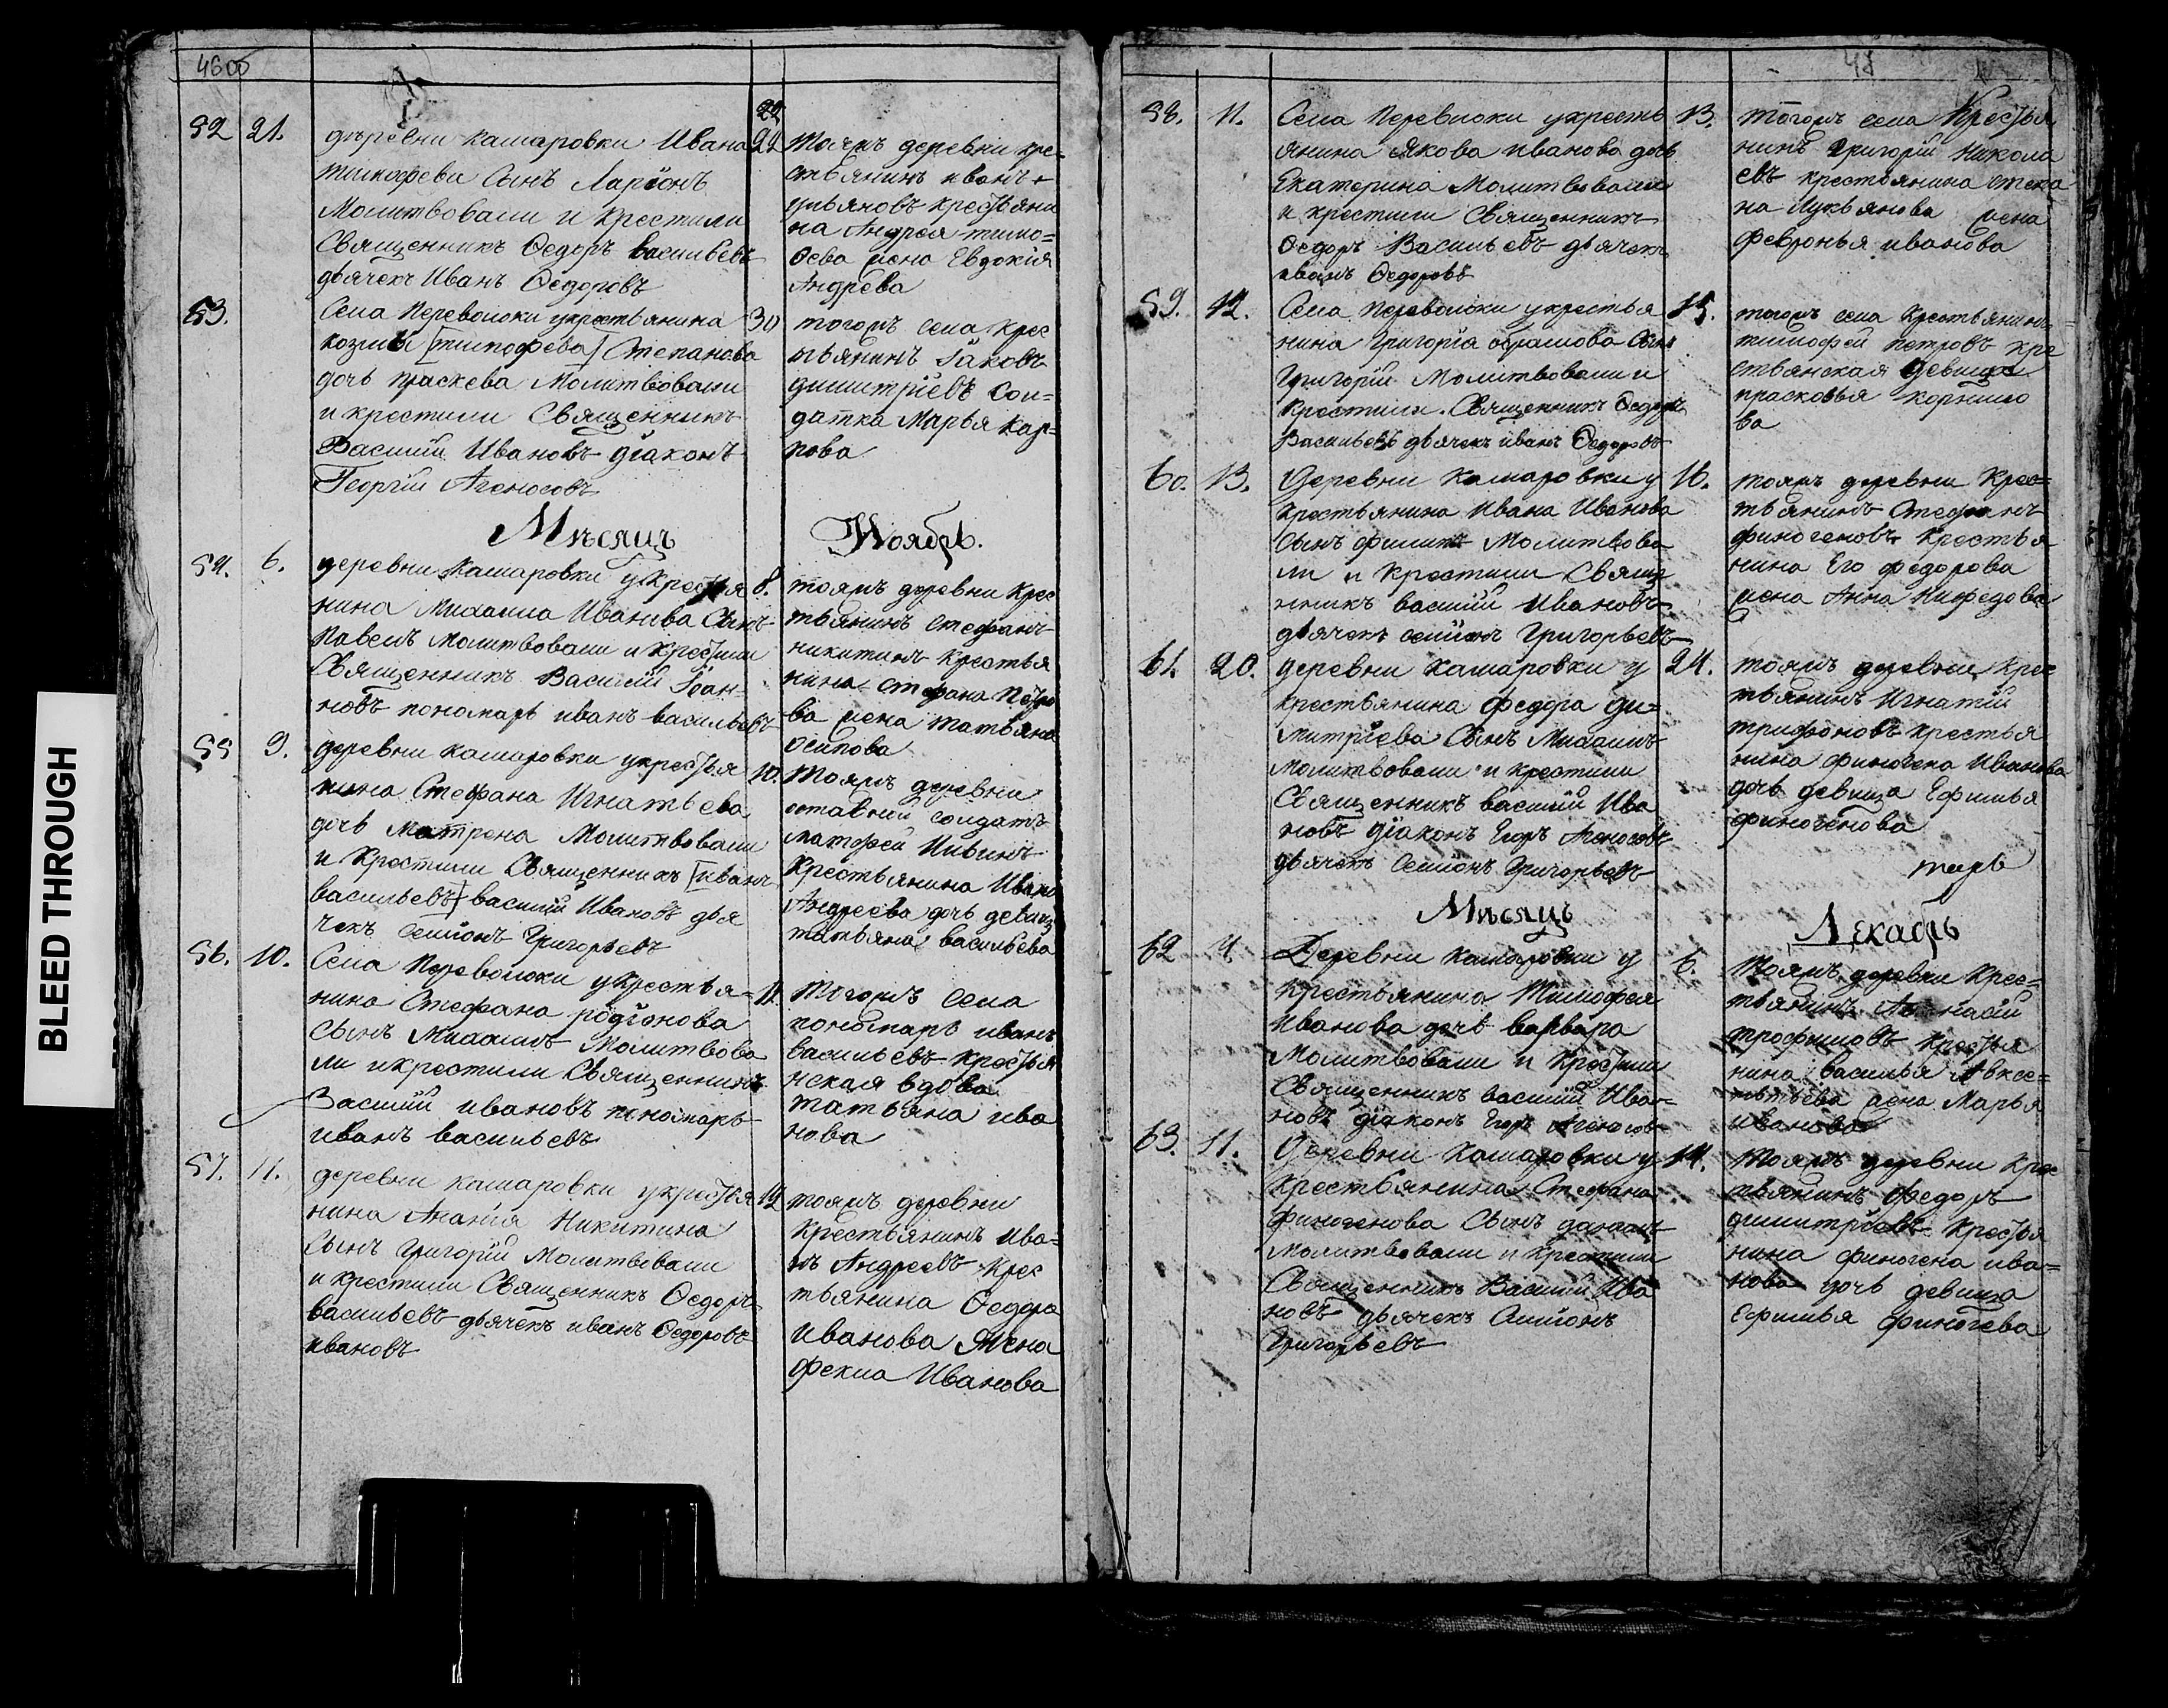 46об
52 21.
деревни Камаровки Ивана
Тимофеева Сынъ Ларiонъ
Молитвовали и крестили
Священникъ Ѳедоръ васильевъ
дьячекъ Иванъ Ѳедоровъ
22
тояжъ деревни кре-
стьянинъ иванъ
крестьяни
на Андрея тимо=
ѳева жена Евдокiя
Андрева
53.
Села Переволоки укрестьянина
козмы [тимофева] Степанова
дочь праскева Молитвовали
и крестили Священникъ
Василий Ивановъ дiаконъ
Георгiй Агеносовъ
30
тогожъ села крес
тьянинъ Iаковъ
димитрiевъ Сол-
датка Марья Кар=
пова
Мѣсяцъ Ноябрь.
54. 6.
деревни Камаровки укрестья
нина Михаила Иванова Сынъ
Павелъ молитвовали и крестили
Священникъ Василий Iоан-
новъ пономарь иванъ васильевъ
8.
тояжъ деревни Крес
тьянинъ Стефанъ
никитинъ крестья
нина стефана Петро
ва жена татьяна
осипова
55 9.
деревни камаровки укрестья
нина Стефана Игнатьева
дочь матрена Молитвовали
и Крестили Священникъ [иванъ
васильевъ] василий Ивановъ дья
чекъ семiонъ Григорьевъ
10.
тояжъ деревни
отставнй солдатъ
матфей Ильинъ
Крестьянина Ивана
Андреева дочь девица
татьяна васильева
56. 10.
Села Переволоки укрестья-
нина Стефана родiонова
сынъ Михаилъ Молитвова
ли и крестили Священникъ
Василий ивановъ пономарь
иванъ васильевъ
11.
тогожъ села
пономарь иванъ
васильевъ крестья
нская вдова
татьяна ива
нова
57. 11.
деревни камаровки укрестья
нина Ананiя Никитина
Сынъ григорiй Молитвовали
и крестили Священникъ Ѳедоръ
васильевъ дьячекъ иванъ Ѳедоровъ
ивановъ
12
тояжъ деревни
крестьянинъ Ива-
нъ Андреевъ крес
тьянина Ѳедора
Иванова жена
фекла Иванова
58. 11.
Села Переволоки укресть
янина Якова иванова дочь
Екатерина Молитвовали
и крестили Священникъ
Ѳедоръ Васильевъ дьячекъ
иванъ Ѳедоровъ
13.
тогожъ села Крестья
нинъ григорiй Никола
евъ крестьянина степа
на Лукьянова жена
февронья иванова
59. 12.
Села Переволоки укрестья
нина григорiя абрамова Сынъ
Григорiй Молитвовали и
крестили. Священникъ Ѳедоръ
Васильевъ дьячекъ иванъ Ѳедоровъ
15.
тогожъ села крестьянинъ
тимофей петровъ кре
стьянская девица
прасковья корнило
ва
60. 13.
Деревни Камаровки у
крестьянина Ивана Иванова
Сынъ филипъ Молитвова
ли и крестили Свяще
нникъ василий Ивановъ
дьячекъ семiонъ Григорьевъ
16.
тояжъ деревни Крес=
тьянинъ Стефанъ
финогеновъ крестья
нина Его федорова
жена Анна Нифедова
61. 20.
деревни камаровки у
крестьянина федора ди=
митрiева Сынъ Михаилъ
молитвовали и крестили
Священникъ василий Ива
новъ дiаконъ Егоръ Агеносовъ
дьячекъ Семiонъ Григорьевъ
24.
тояжъ деревни крес
тьянинъ Игнатiй
трифоновъ крестья
нина финогена Иванова
дочь девица Ефимья
финогенова
Мѣсяцъ Декабрь
62 4
Деревни камаровки у
крестьянина Тимофея
Иванова дочь варвара
Молитвовали и Крестили
Священникъ василий Ива-
новъ дiаконъ Егоръ Агеносовъ
6.
тояжъ деревни крес=
тьянинъ
трофимовъ крестья
нина василья Авксе=
нтьева жена Марья
иванова
63. 11.
Деревни Камаровки у
крестьянина Стефана
финогенова Сынъ данилъ
Молитвовали и Крестили
Священникъ Василий Ива
новъ дьячекъ Симiонъ
Григорьевъ
14.
тояжъ деревни Крес
тьянинъ федоръ
димитрiевъ крестья
нина финогена ива=
нова дочь девица
Ефимья финогева
BLEED THROUGH